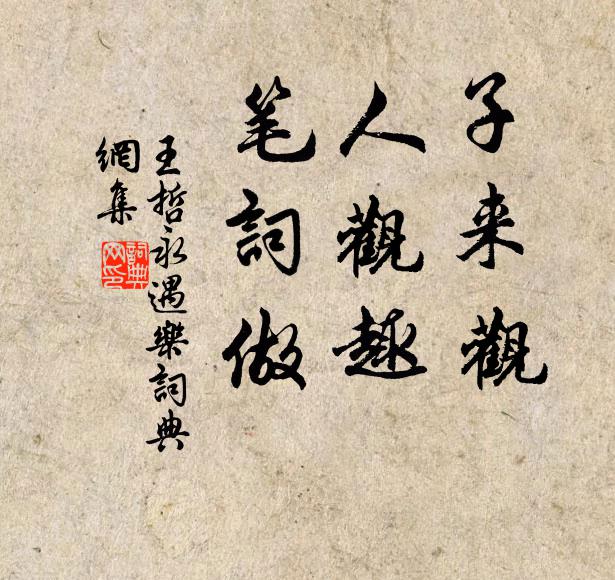 子来觀
人觀趣
笔詞做
王哲永遇樂詞典
網集
詞典
网印